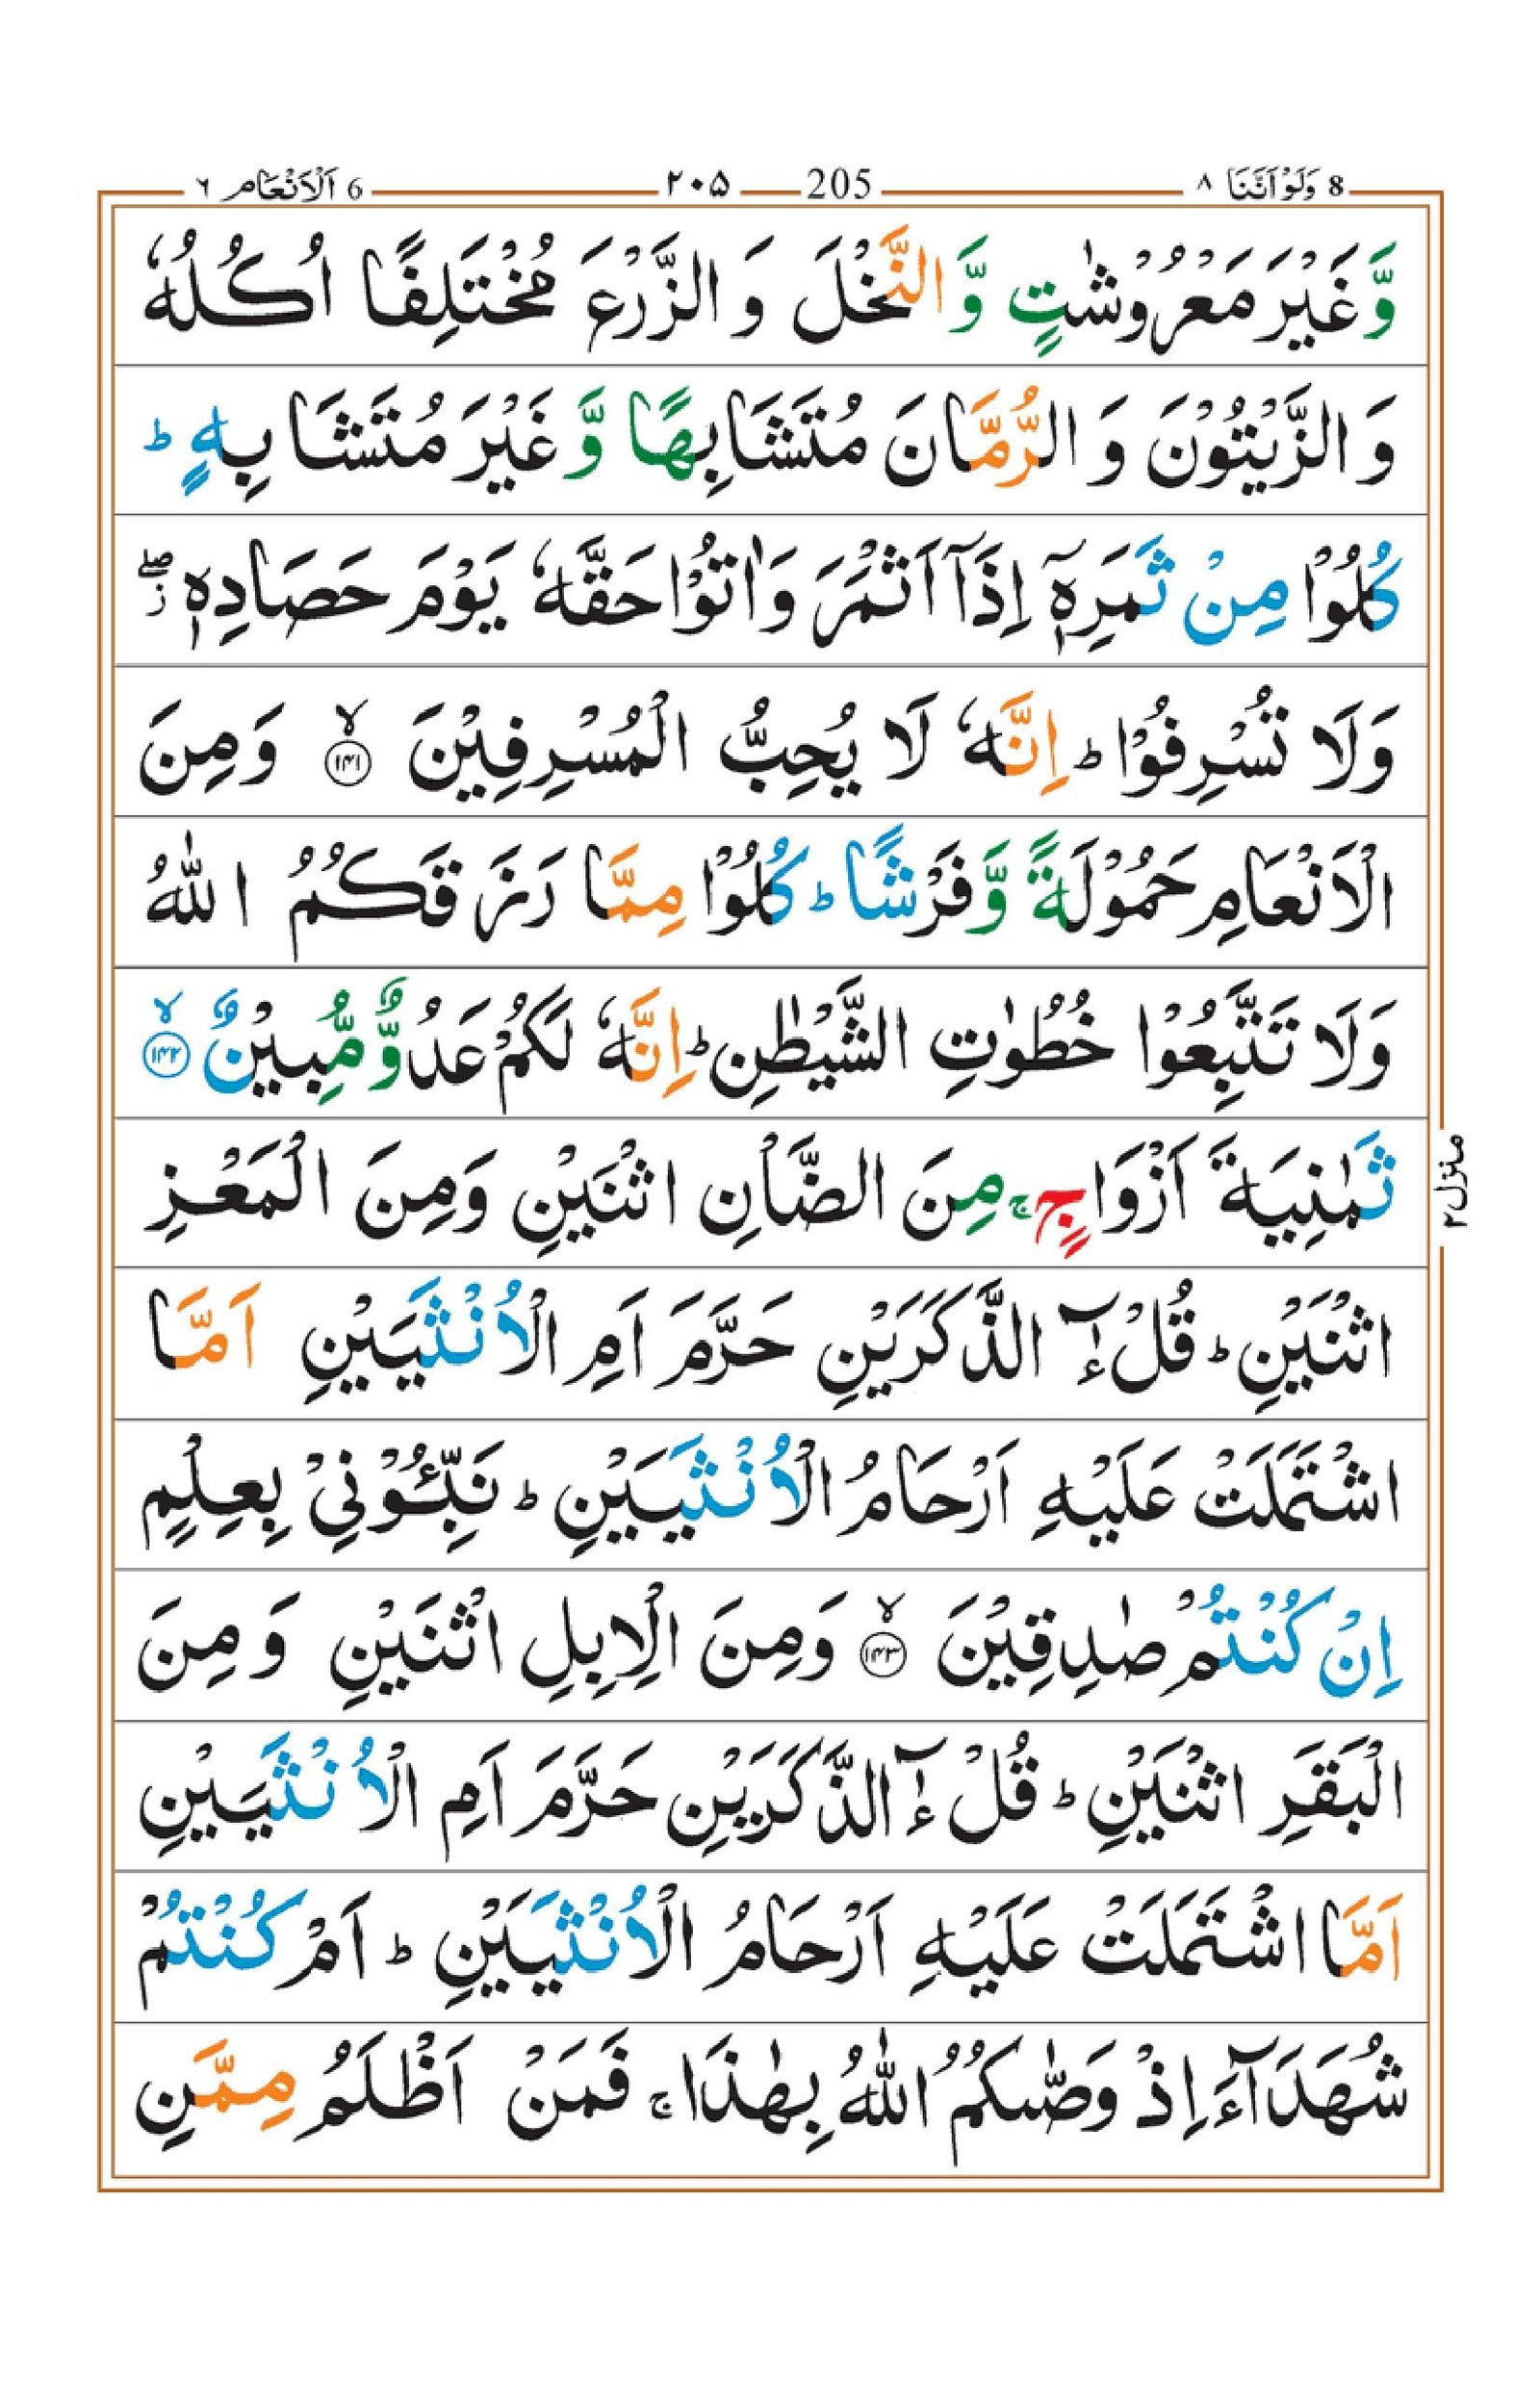 8 وَلَوْ اَنَّنَا ٨ 205 ٢٠٥ 6 اَلْاَنْعَام ٦
وَّ غَيْرَ مَعْرُوْشٰتٍ وَّ النَّخْلَ وَ الزَّرْعَ مُخْتَلِفًا اُكُلُهٗ
وَ الزَّيْتُوْنَ وَ الرُّمَّانَ مُتَشَابِهًا وَّ غَيْرَ مُتَشَابِهٍ ؕ
كُلُوْا مِنْ ثَمَرِهٖۤ اِذَاۤ اَثْمَرَ وَ اٰتُوْا حَقَّهٗ يَوْمَ حَصَادِهٖ ۖز
وَلَا تُسْرِفُوْا ؕ اِنَّهٗ لَا يُحِبُّ الْمُسْرِفِيْنَ ۙ﴿۱۴۱﴾ وَمِنَ
الْاَنْعَامِ حَمُوْلَةً وَّ فَرْشًا ؕ كُلُوْا مِمَّا رَزَقَكُمُ اللّٰهُ
وَلَا تَتَّبِعُوْا خُطُوٰتِ الشَّيْطٰنِ ؕ اِنَّهٗ لَكُمْ عَدُوٌّ مُّبِيْنٌ ۙ﴿۱۴۲﴾
ثَمٰنِيَةَ اَزْوَاجٍ ۚ مِنَ الضَّاْنِ اثْنَيْنِ وَمِنَ الْمَعْزِ
اثْنَيْنِ ؕ قُلْ ءٰٓ الذَّكَرَيْنِ حَرَّمَ اَمِ الْاُنْثَيَيْنِ اَمَّا
اشْتَمَلَتْ عَلَيْهِ اَرْحَامُ الْاُنْثَيَيْنِ ؕ نَبِّـُٔوْنِيْ بِعِلْمٍ
اِنْ كُنْتُمْ صٰدِقِيْنَ ۙ﴿۱۴۳﴾ وَمِنَ الْاِبِلِ اثْنَيْنِ وَ مِنَ
الْبَقَرِ اثْنَيْنِ ؕ قُلْ ءٰٓ الذَّكَرَيْنِ حَرَّمَ اَمِ الْاُنْثَيَيْنِ
اَمَّا اشْتَمَلَتْ عَلَيْهِ اَرْحَامُ الْاُنْثَيَيْنِ ؕ اَمْ كُنْتُمْ
شُهَدَآءَ اِذْ وَصّٰىكُمُ اللّٰهُ بِهٰذَا ۚ فَمَنْ اَظْلَمُ مِمَّنِ
منزل٢